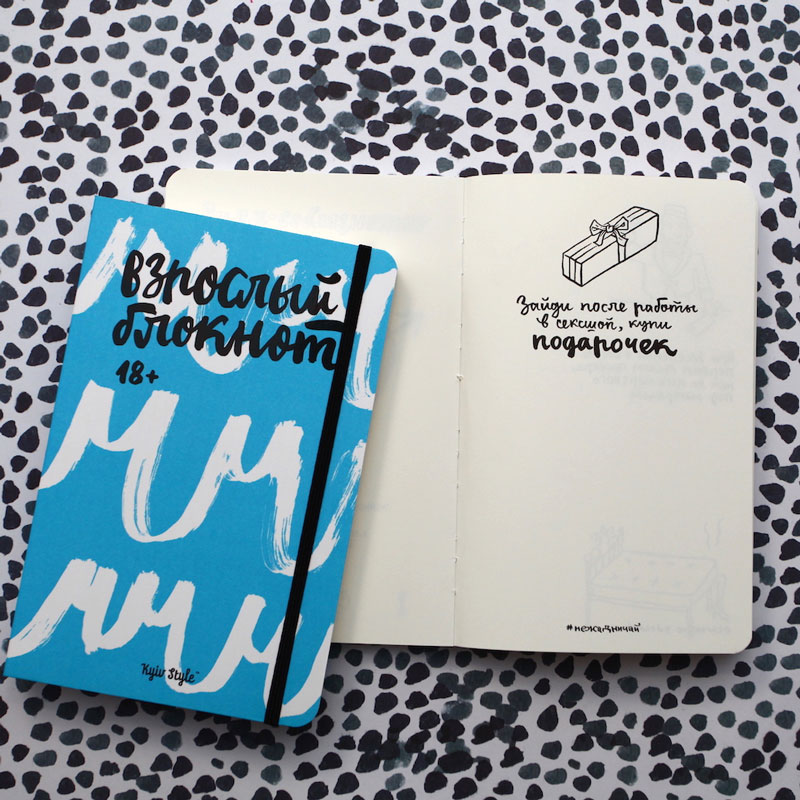 взрослый
блокнот
18+
Kyiv Style™
Зайди после работы
в сексшой, купи
подарочек
#нежадничай